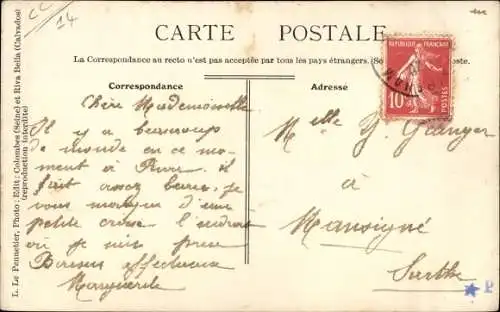 CC
14
CARTE POSTALE
La Correspondance au recto n'est pas acceptée par tous les pays étrangers. (Se poste.)
Correspondance
Adresse
RÉPUBLIQUE FRANÇAISE
10
POSTES
Chère Mademoiselle
Il y a beaucoup
de monde en ce mo-
ment à Riva. il
fait assez beau, je
vous marque d'une
petite croix l'endroit
où je suis
Baisers affectueux
Marguerite
Melle Y. Granger
à
Mansigné
Sarthe
P
L. Le Pennetier, Photo; Edit; Colombes (Seine) et Riva Bella (Calvados)
(reproduction interdite)